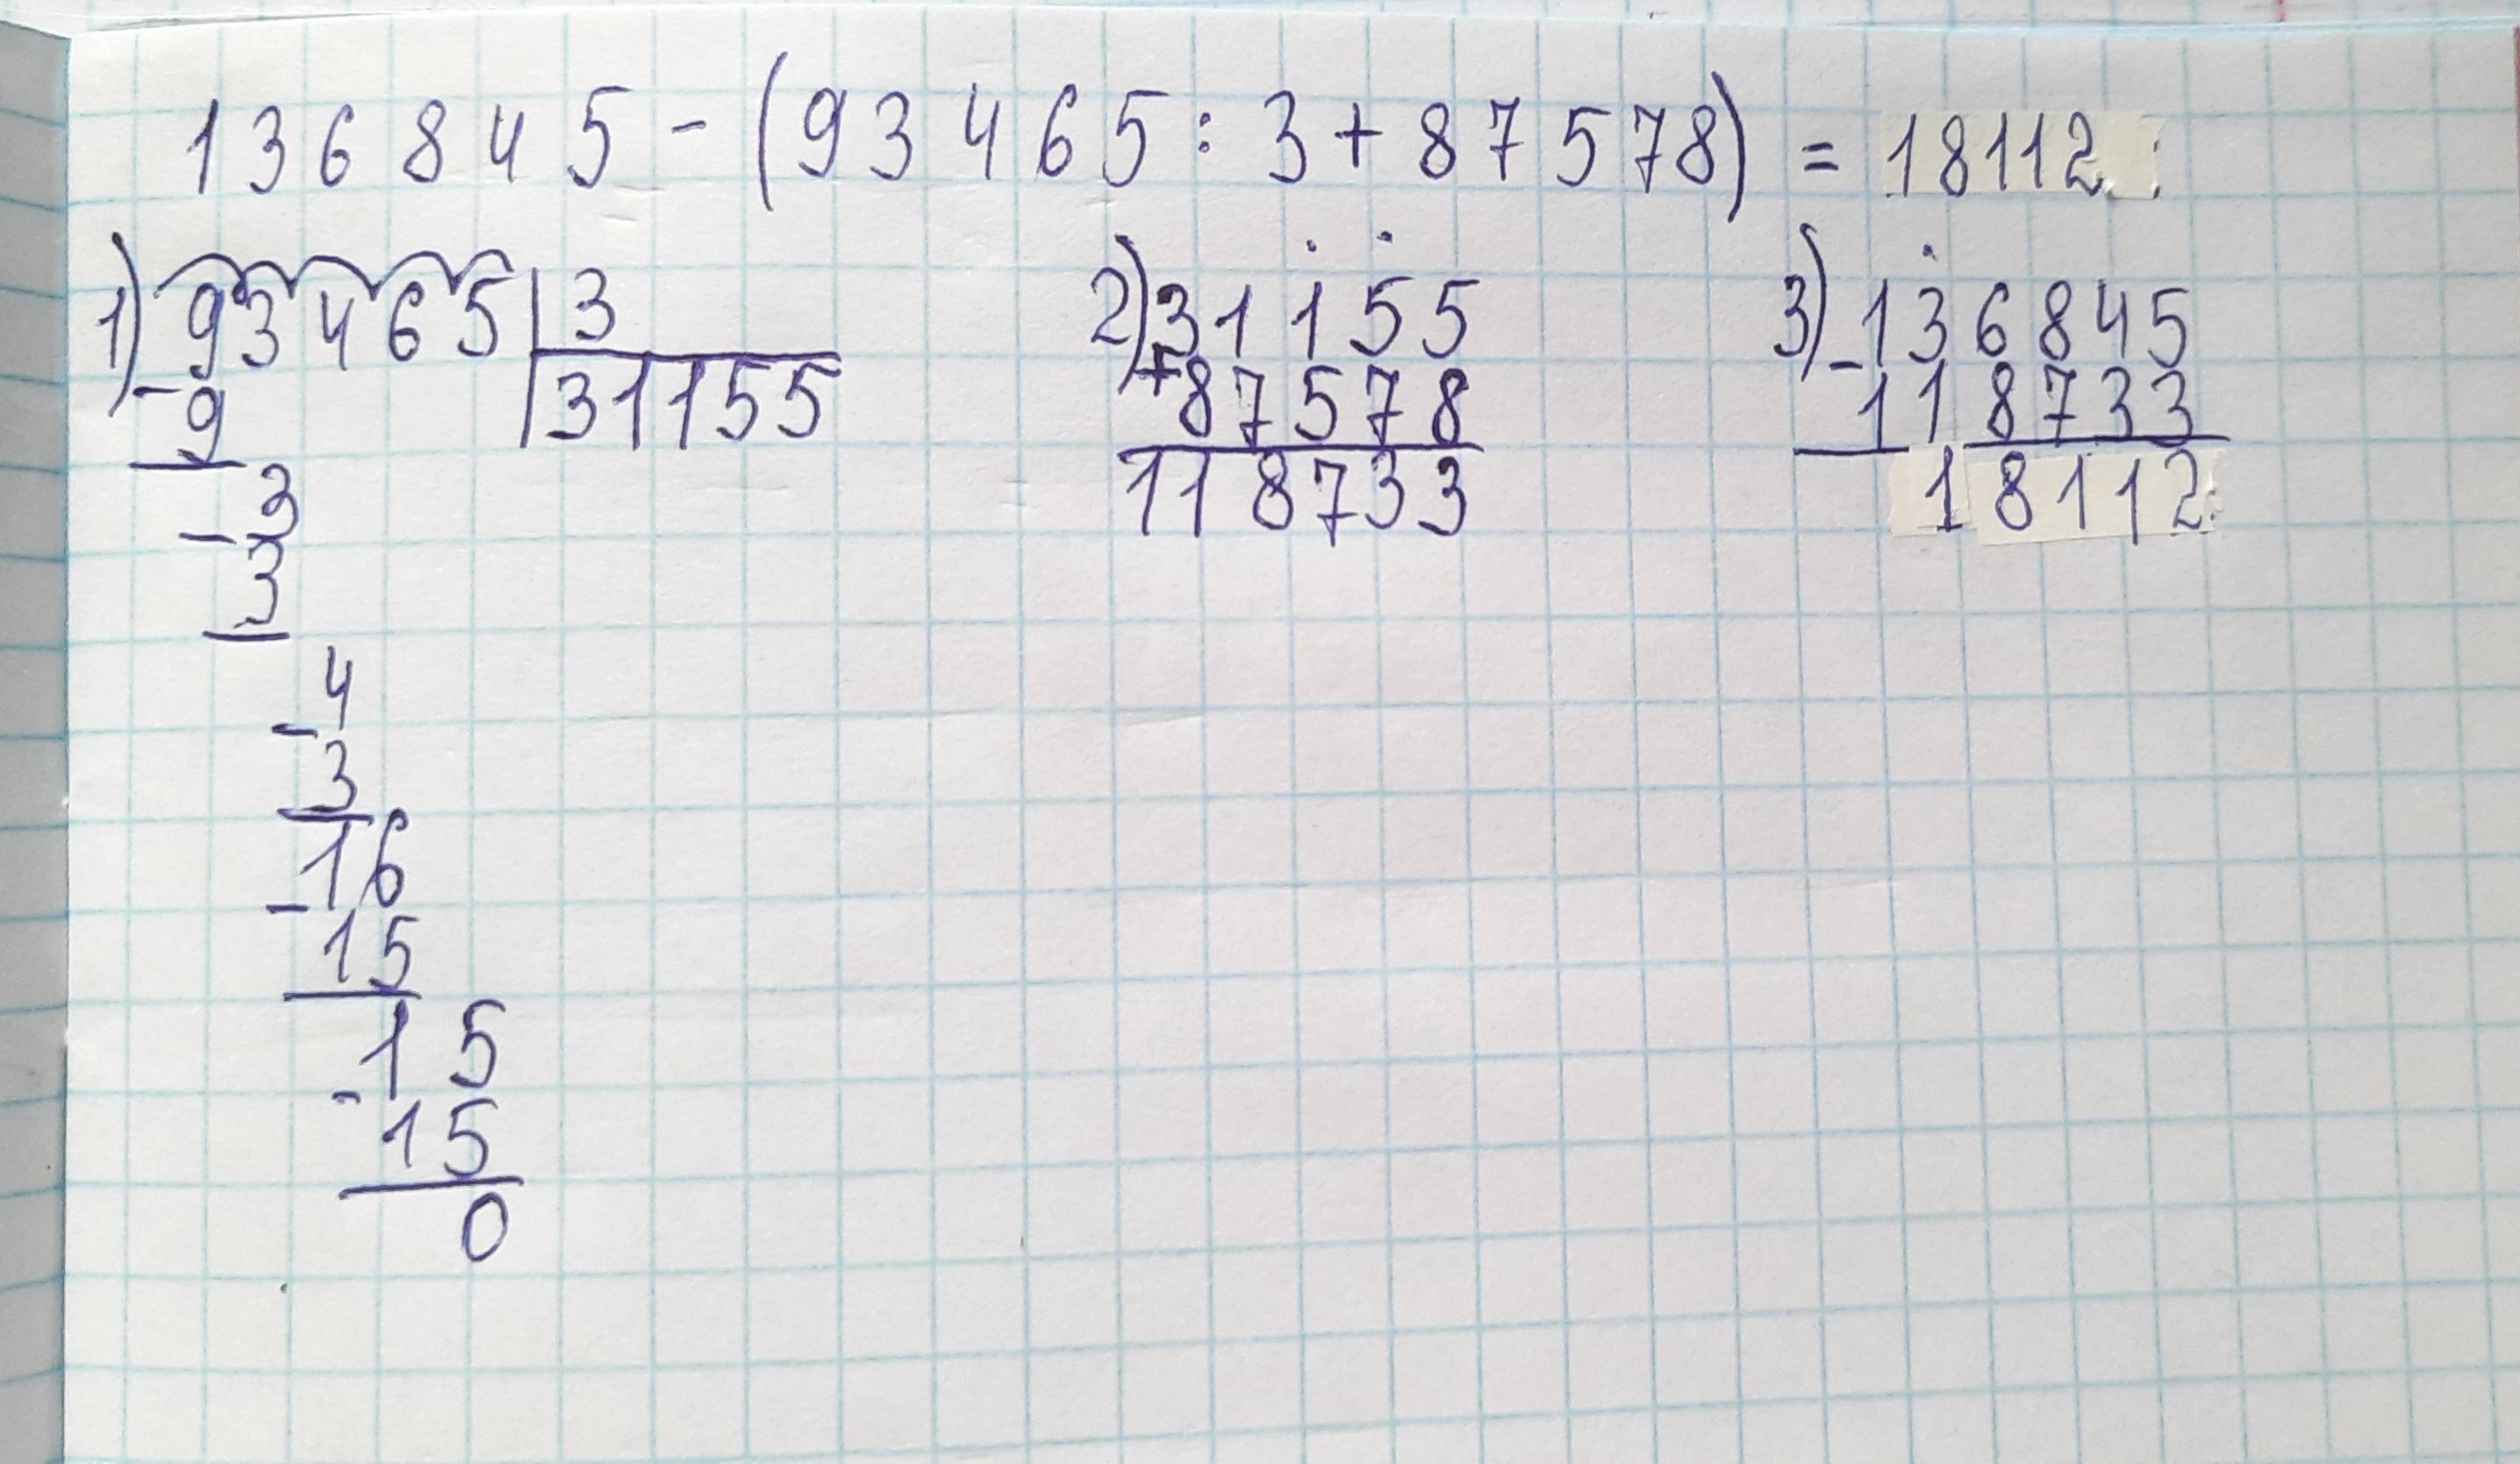 136845-(93465:3+87578)=18112
1) 93465 3 2) 31155 3) -136845
-9 31155 +87578 118733
3 118733 18112
-3
4
-3
16
-15
15
-15
0